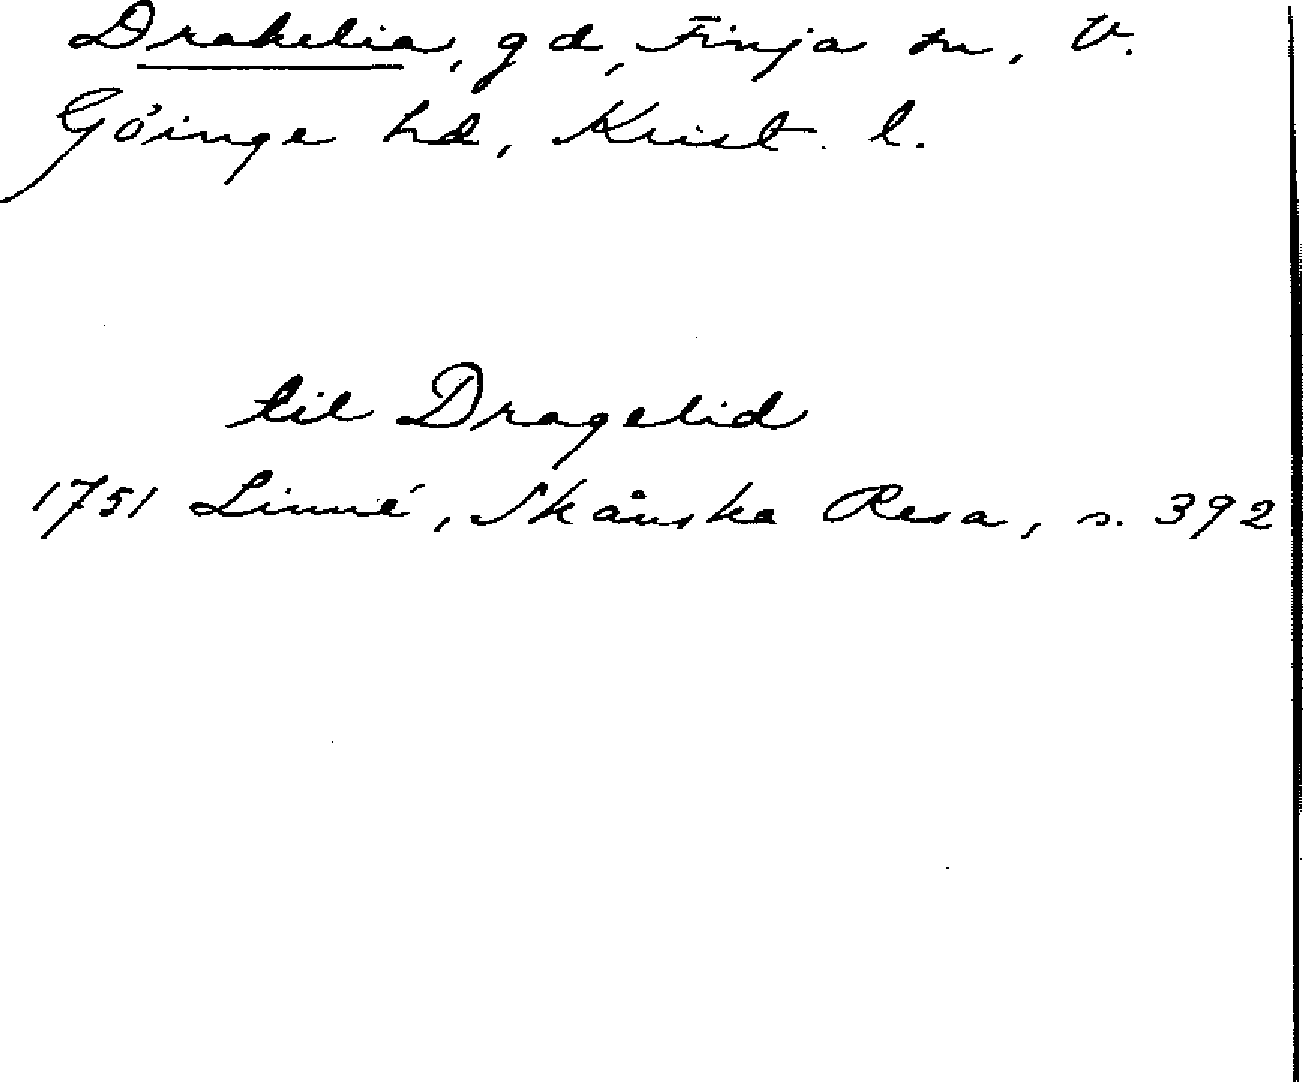 Drakelia, gd, Finja sn, V.
Göinge hd, Krist. l.
til Dragelid
1751 Linné, Skånska Resa, s. 392